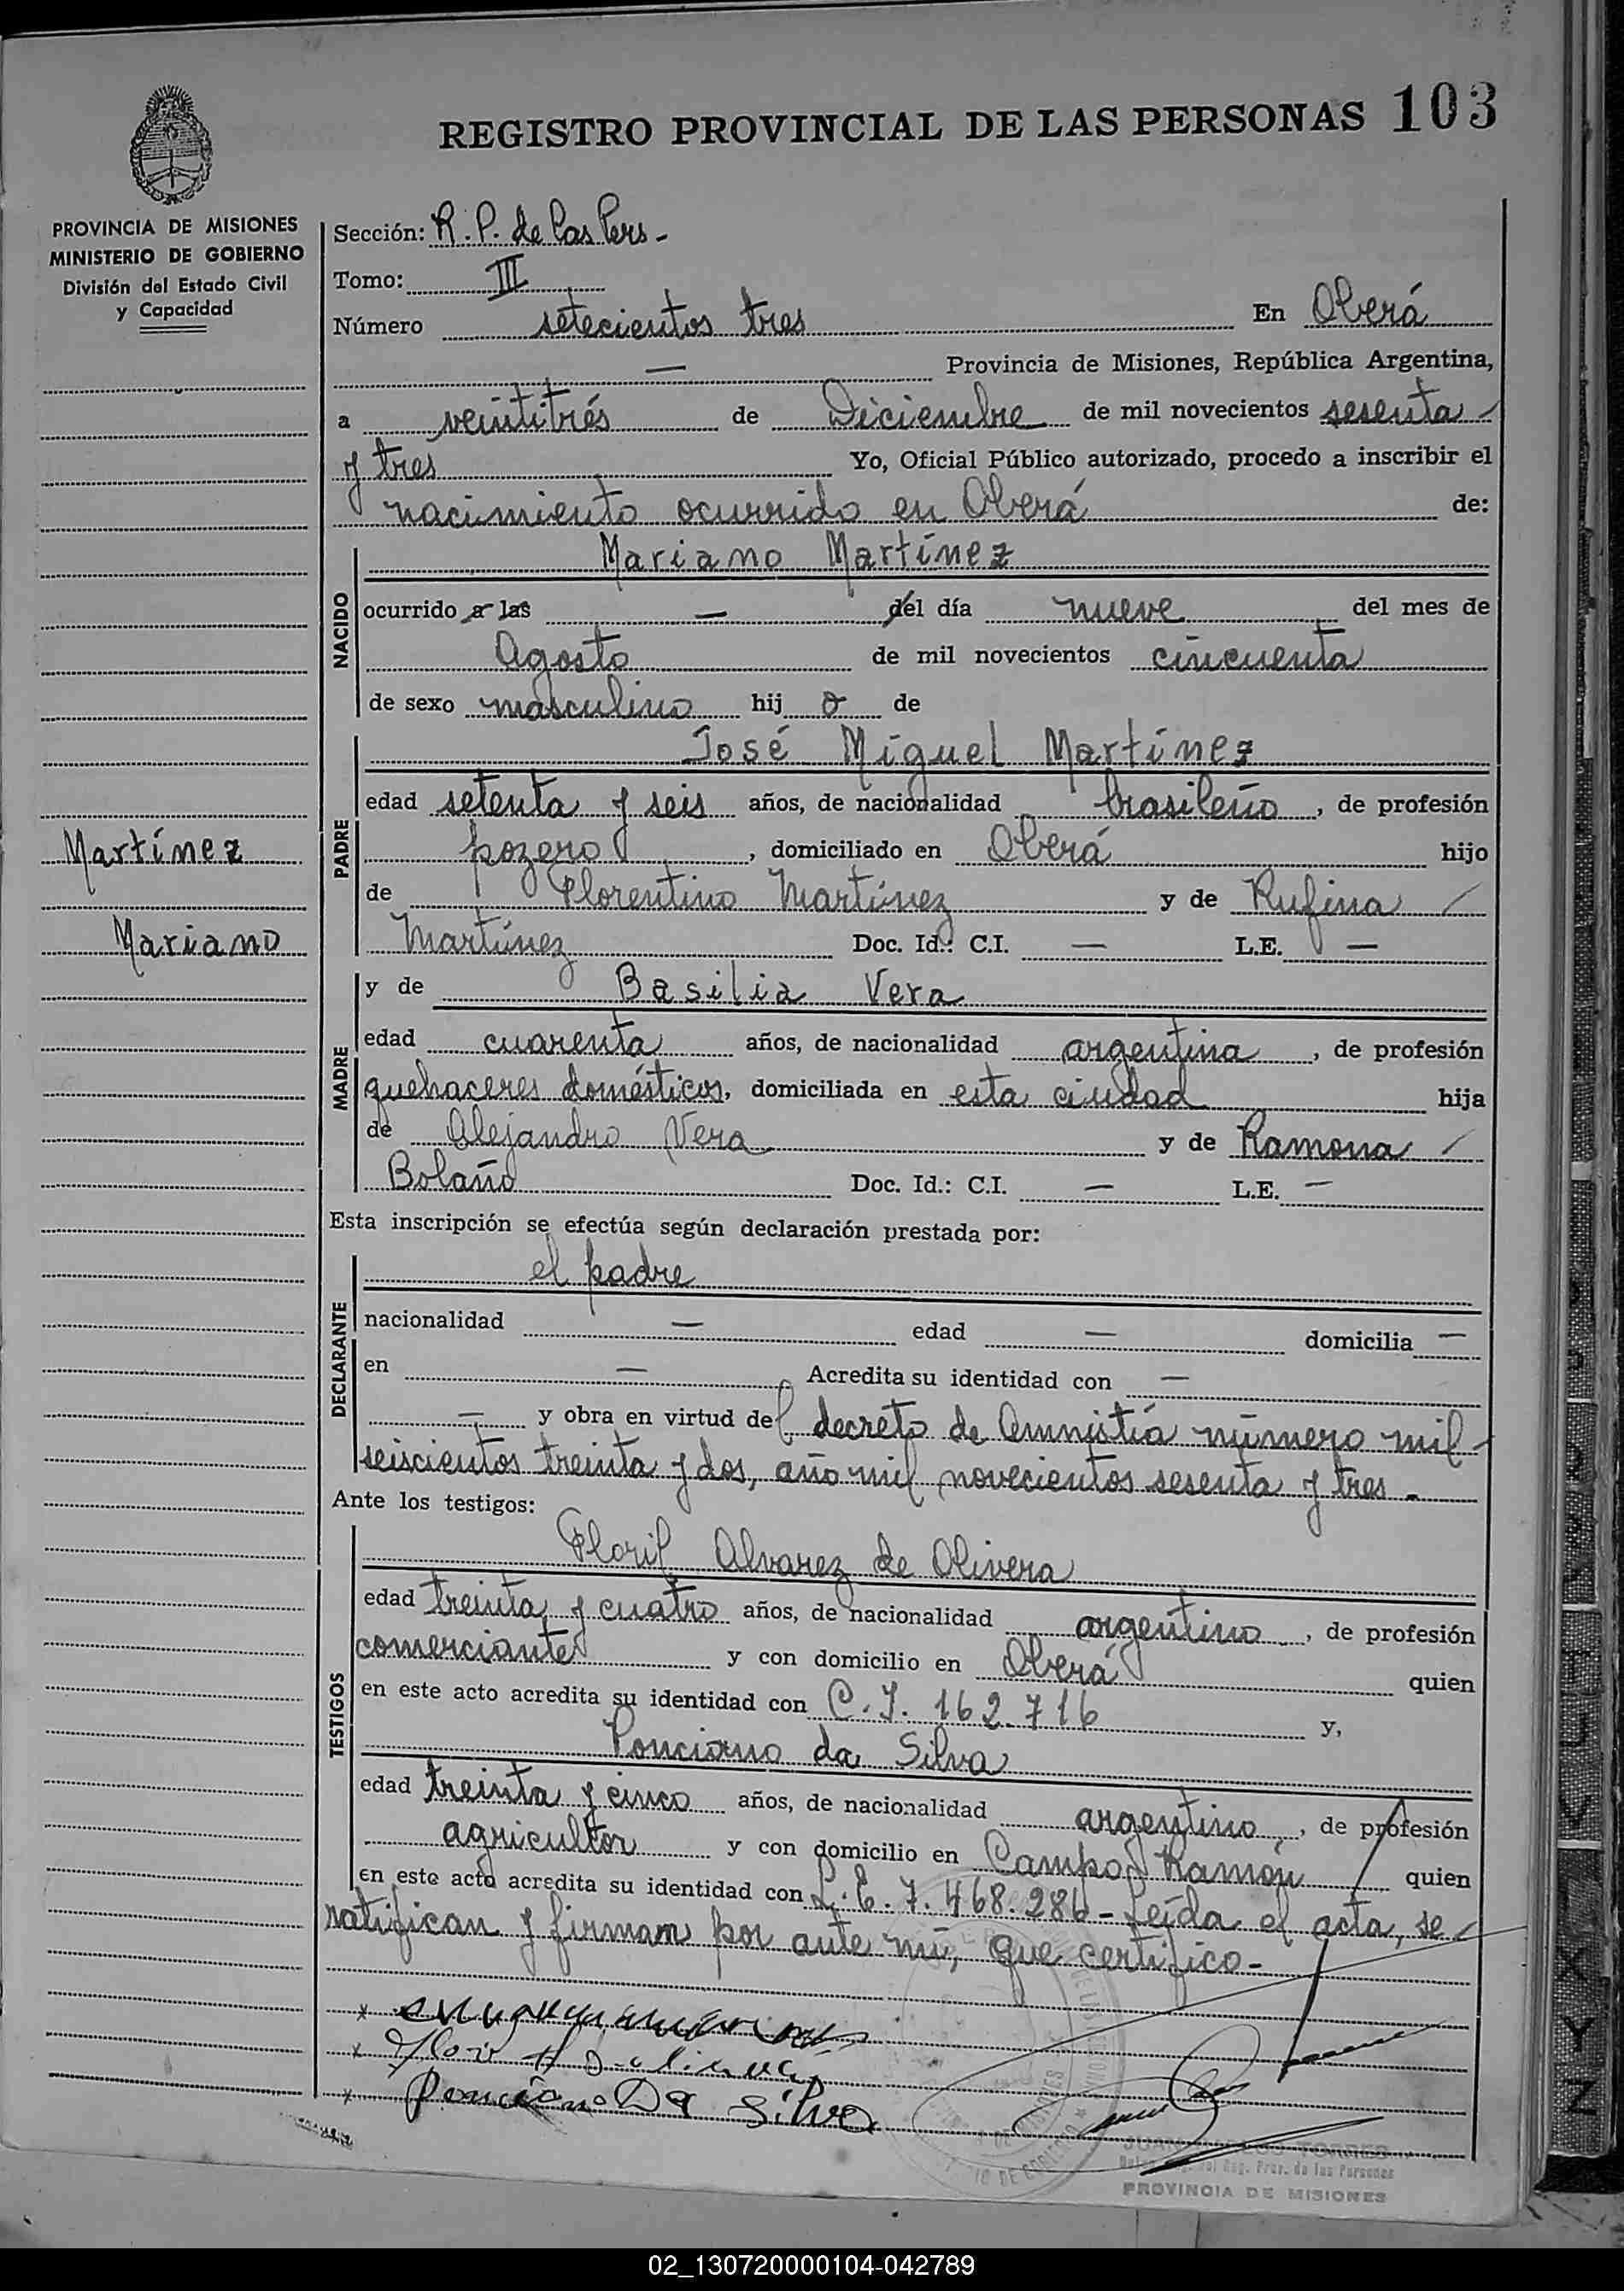 REGISTRO PROVINCIAL DE LAS PERSONAS 103
PROVINCIA DE MISIONES
MINISTERIO DE GOBIERNO
División del Estado Civil
y Capacidad
Martínez
Mariano
Sección: R. P. de las Pers-
Tomo: III
Número setecientos tres En Oberá
— Provincia de Misiones, República Argentina,
a veintitrés de Diciembre de mil novecientos sesenta
y tres Yo, Oficial Público autorizado, procedo a inscribir el
nacimiento ocurrido en Oberá de:
NACIDO
Mariano Martínez
ocurrido a las — del día nueve del mes de
Agosto de mil novecientos cincuenta
de sexo masculino hij o de
PADRE
José Miguel Martínez
edad setenta y seis años, de nacionalidad brasileño, de profesión
pozero, domiciliado en Oberá hijo
de Florentino Martínez y de Rufina
Martínez Doc. Id.: C.I. — L.E. —
MADRE
y de Basilia Vera
edad cuarenta años, de nacionalidad argentina, de profesión
quehaceres domésticos, domiciliada en esta ciudad hija
de Alejandro Vera y de Ramona
Bolaño Doc. Id.: C.I. — L.E. —
Esta inscripción se efectúa según declaración prestada por:
DECLARANTE
el padre
nacionalidad — edad — domicilia —
en — Acredita su identidad con —
— y obra en virtud del decreto de Amnistía número mil
seiscientos treinta y dos, año mil novecientos sesenta y tres -
Ante los testigos:
TESTIGOS
Floril Alvarez de Olivera
edad treinta y cuatro años, de nacionalidad argentino, de profesión
comerciante y con domicilio en Oberá quien
en este acto acredita su identidad con C. I. 162.716 y,
Ponciano da Silva
edad treinta y cinco años, de nacionalidad argentino, de profesión
agricultor y con domicilio en Campo Ramón quien
en este acto acredita su identidad con L. E. 7.468.286 - Leída el acta, se
ratifican y firman por ante mí, que certifico -
Ponciano Da Silva
TORRES
Reg. Prov. de las Personas
PROVINCIA DE MISIONES
02_130720000104-042789